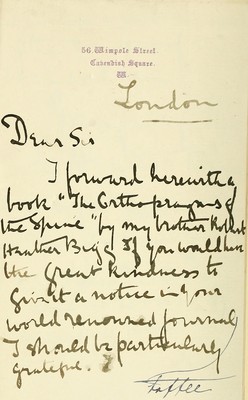 56. Wimpole Street.
Cavendish Square.
W.
London
Dear Sir
I forward herewith a
book "The Orthopraxy of
the Spine" by my brother Robert
Heather Bigg If you would have
the great kindness to
give it a notice in your
world renowned journal,
I should be particularly
grateful.